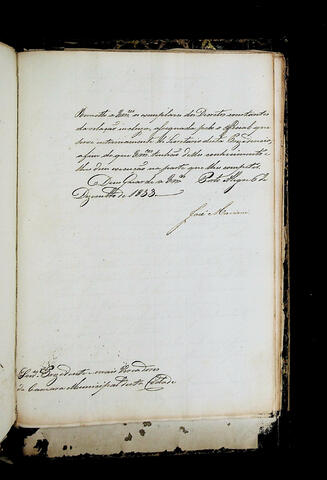 Remetto a Vmces os exemplares dos Decretos constantes
da relação incluza, assignada pelo Official que
serve internamente de Secretario desta Prezidencia,
a fim de que Vmces tenhão delles conhecimento e
lhes dêm execução na parte que lhes competir.
Deos Guarde a Vmces Porto Alegre 62
Dezembro de 1833.
José Mariani
Senres Prezidente e mais Vereadores
da Camara Municipal desta Cidade